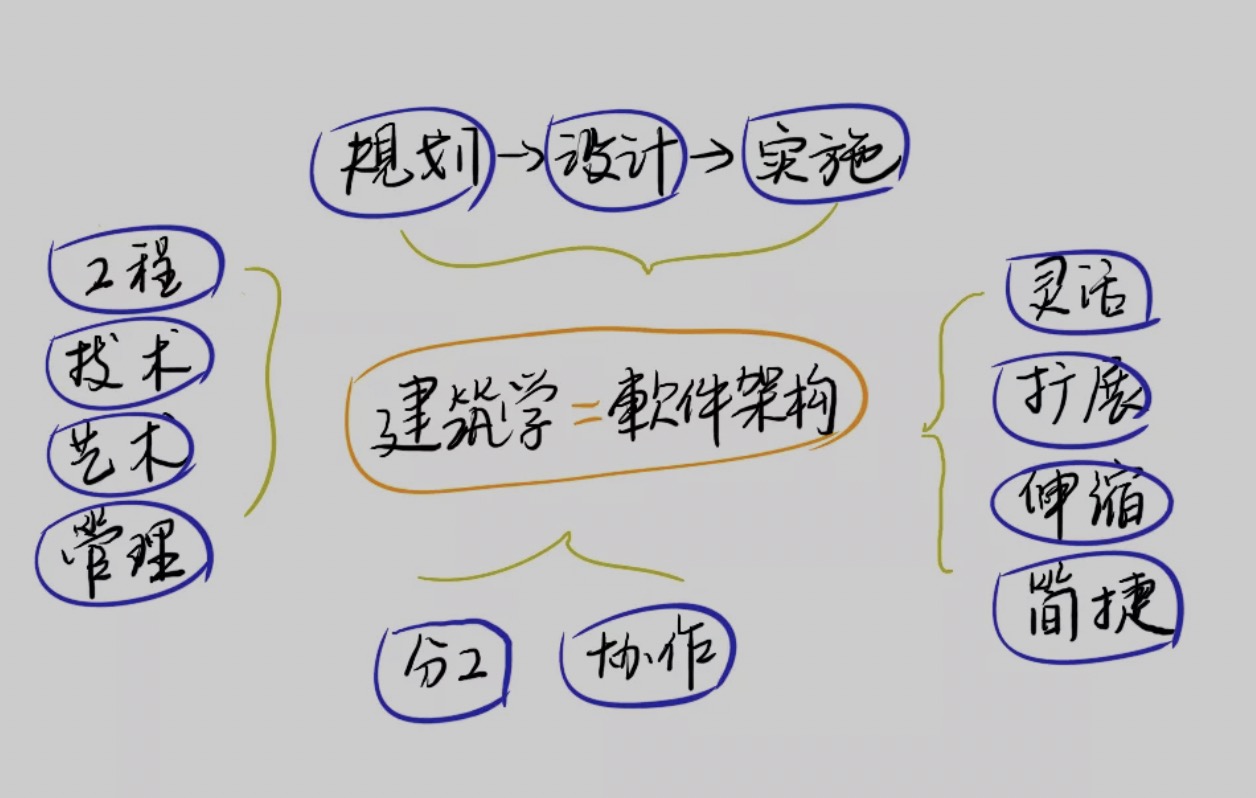 规划→设计→实施
工程
技术
艺术
管理
建筑学=軟件架构
灵活
扩展
伸缩
简捷
分工
协作